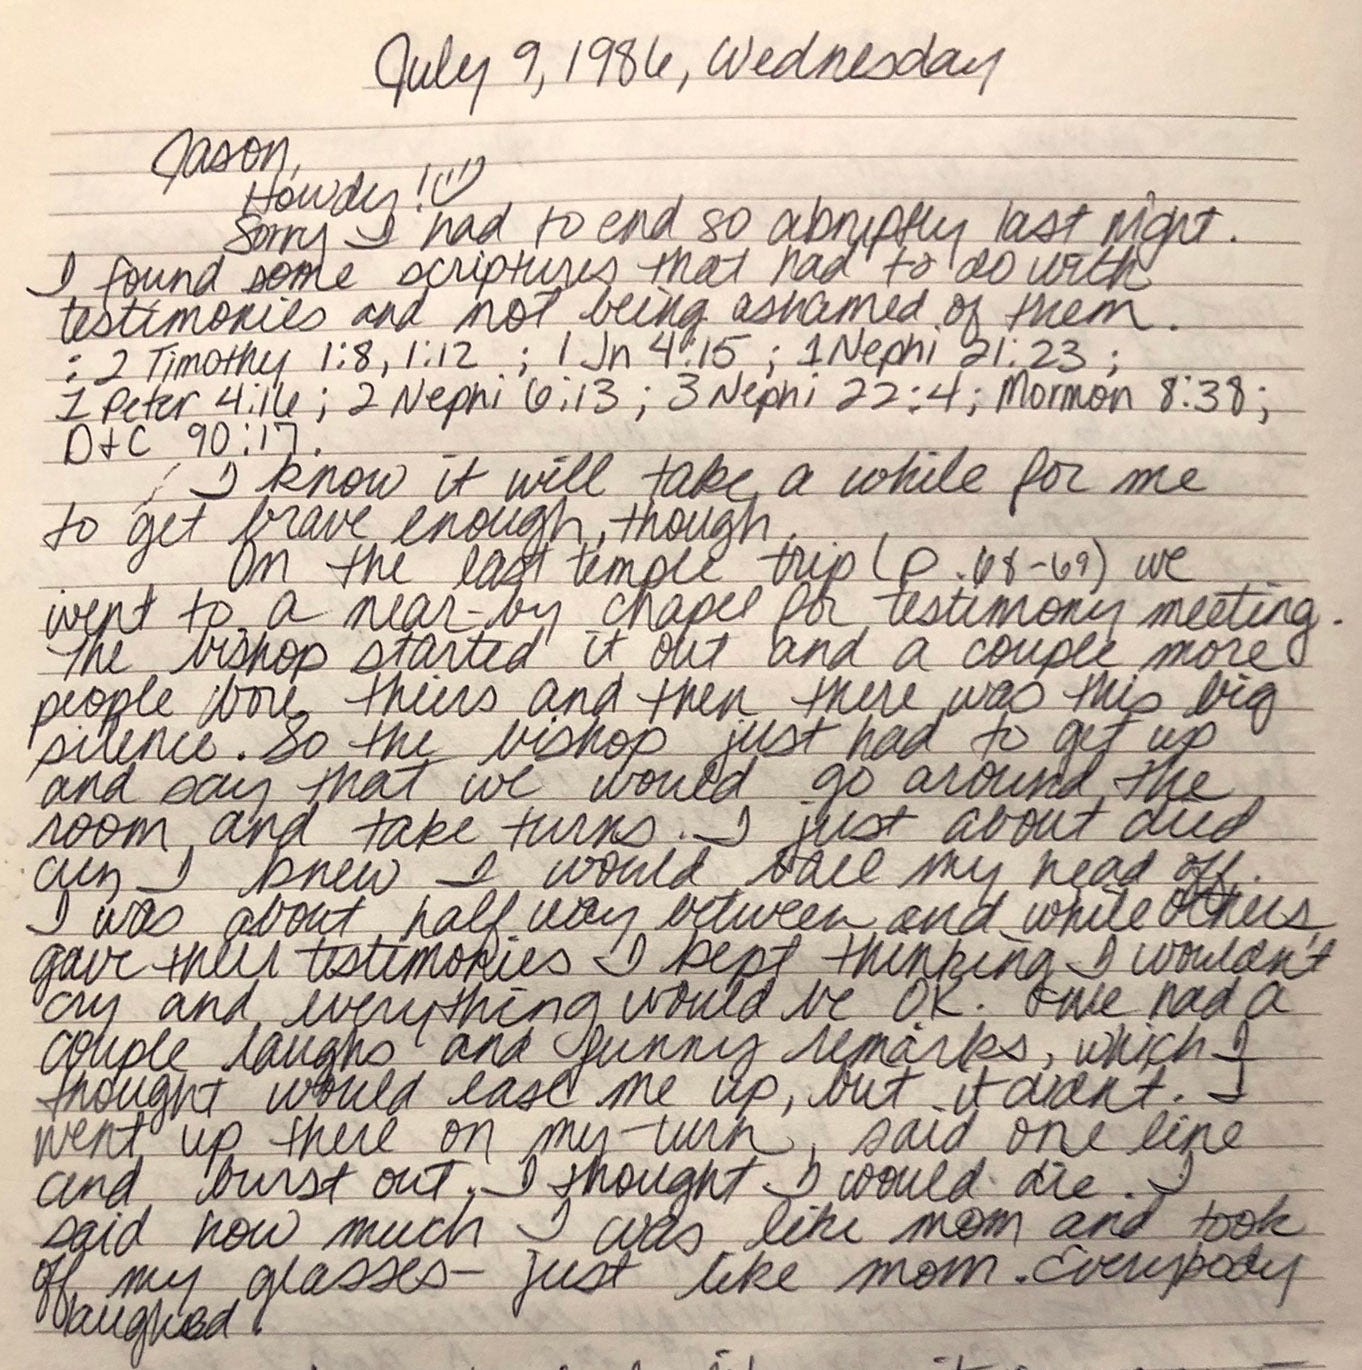 July 9, 1986, Wednesday
Jason,
Howdy!
Sorry I had to end so abruptly last night.
I found some scriptures that had to do with
testimonies and not being ashamed of them.
: 2 Timothy 1:8, 1:12 ; 1 Jn 4:15 ; 1 Nephi 21:23 ;
1 Peter 4:16 ; 2 Nephi 6:13 ; 3 Nephi 22:4 ; Mormon 8:38 ;
D+C 90:17.
I know it will take a while for me
to get brave enough, though.
On the last temple trip (p. 68-69) we
went to a near-by chapel for testimony meeting.
The bishop started it out and a couple more
people bore theirs and then there was this big
silence. So the bishop just had to get up
and say that we would go around the
room and take turns. I just about died
cuz I knew I would bale my head off.
I was about half way between and while others
gave their testimonies I kept thinking I wouldn't
cry and everything would be OK. We had a
couple laughs and funny remarks, which I
thought would ease me up, but it didn't. I
went up there on my turn, said one line
and burst out. I thought I would die. I
said how much I was like mom and took
off my glasses - just like mom. Everybody
laughed.